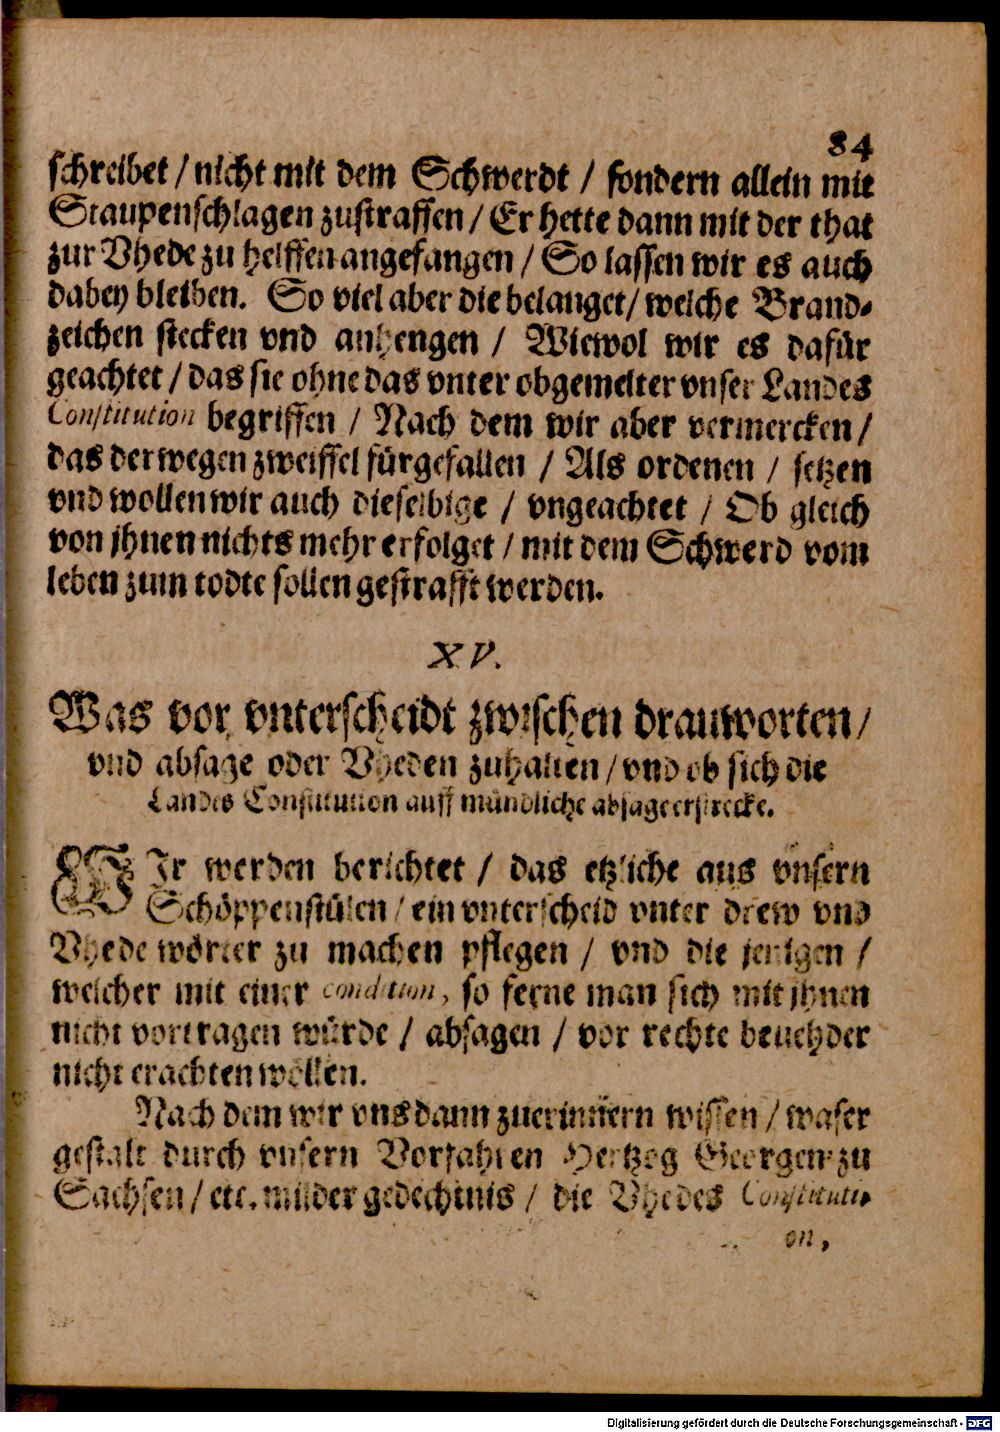 84
schreibet / nicht mit dem Schwerdt / sondern allein mit
Staupenschlagen zustraffen / Er hette dann mit der that
zur Vhede zu helffen angefangen / So lassen wir es auch
dabey bleiben. So viel aber die belanget / welche Brand-
zeichen stecken vnd anhengen / Wiewol wir es dafür
geachtet / das sie ohne das vnter obgemelter vnser Landes
Constitution begriffen / Nach dem wir aber vermercken /
das derwegen zweiffel fürgefallen / Als ordenen / setzen
vnd wollen wir auch dieselbige / vngeachtet / Ob gleich
von jhnen nichts mehr erfolget / mit dem Schwerd vom
leben zum todte sollen gestrafft werden.
XV.
Was vor vnterscheidt zwischen drauworten /
vnd absage oder Vheden zuhalten / vnd ob sich die
Landes Constitution auff mündliche absage erstrecke.
WIr werden berichtet / das etzliche aus vnsern
Schöppenstülen / ein vnterscheid vnter drew vnd
Vhede wörter zu machen pflegen / vnd die jenigen /
welcher mit einer condition, so ferne man sich mit jhnen
nicht vortragen würde / absagen / vor rechte beuehder
nicht erachten wollen.
Nach dem wir vns dann zuerinnern wissen / waser
gestalt durch vnsern Vorfahren Hertzog Georgen zu
Sachsen / etc. milder gedechtnis / die Vhedes Constituti-
on,
Digitalisierung gefördert durch die Deutsche Forschungsgemeinschaft - DFG